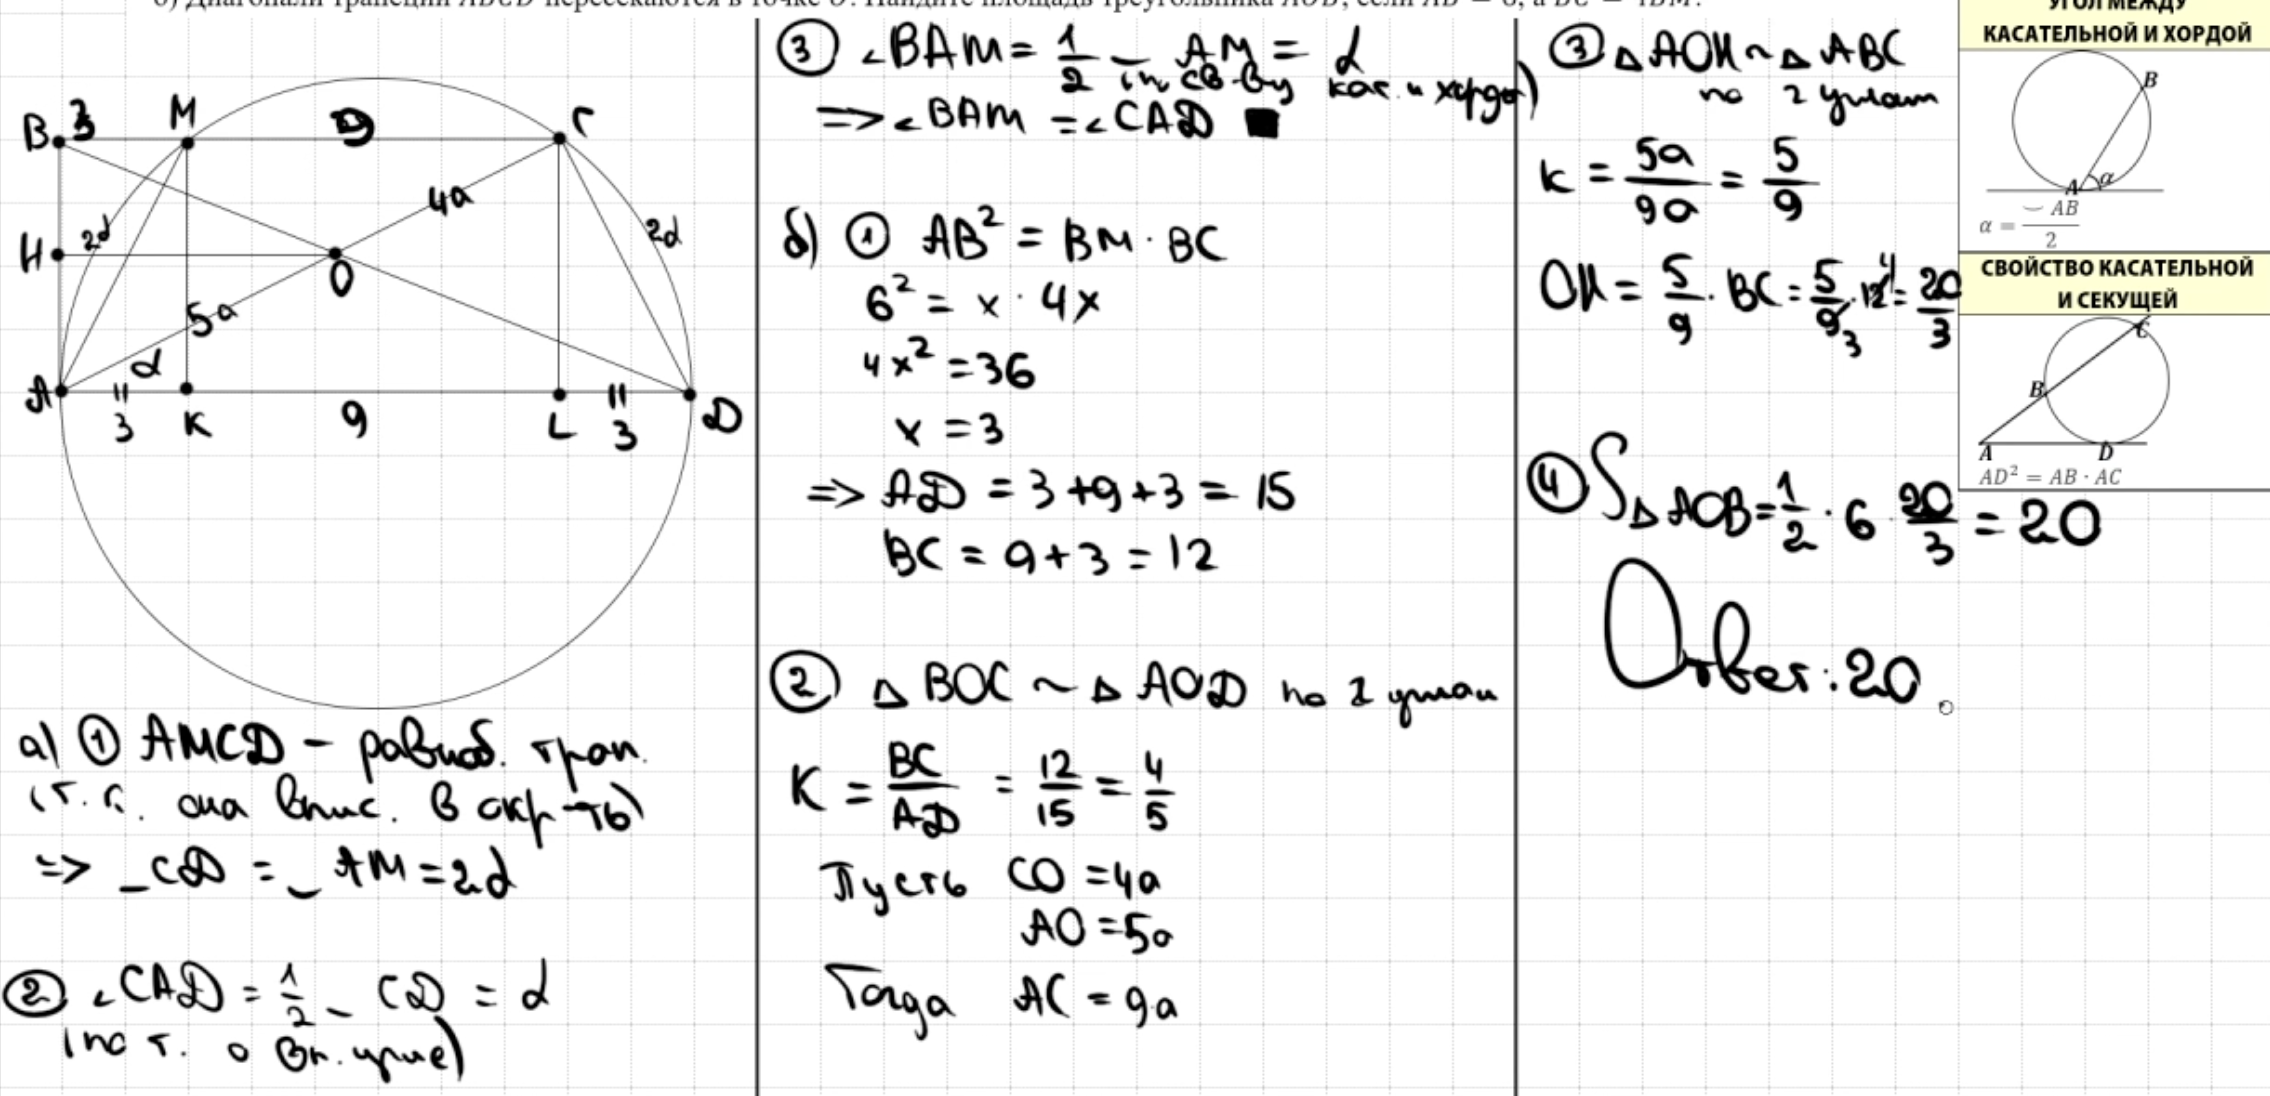 б) Диагонали трапеции ABCD пересекаются в точке O. Найдите площадь треугольника AOB, если AB = 6, а BC = 4BM.
B 3 M 9 C
4a
H 2α O 2α
5a
α
A 3 K 9 L 3 D
а) ① AMCD - равноб. трап.
(т.к. она впис. в окр-ть)
=> ◡CD = ◡AM = 2α
② ∠CAD = 1/2 ◡CD = α
(по т. о вп. угле)
③ ∠BAM = 1/2 ◡AM = α
(по св-ву кас. и хорды)
=> ∠BAM = ∠CAD ■
б) ① AB² = BM · BC
6² = x · 4x
4x² = 36
x = 3
=> AD = 3 + 9 + 3 = 15
BC = 9 + 3 = 12
② △BOC ~ △AOD по 2 углам
K = BC/AD = 12/15 = 4/5
Пусть CO = 4a
AO = 5a
Тогда AC = 9a
③ △AOH ~ △ABC
по 2 углам
k = 5a/9a = 5/9
OH = 5/9 · BC = 5/9 · 12 = 20/3
4
3
④ S△AOB = 1/2 · 6 · 20/3 = 20
Ответ: 20
УГОЛ МЕЖДУ
КАСАТЕЛЬНОЙ И ХОРДОЙ
B
A α
α = ◡AB/2
СВОЙСТВО КАСАТЕЛЬНОЙ
И СЕКУЩЕЙ
C
B
A D
AD² = AB · AC